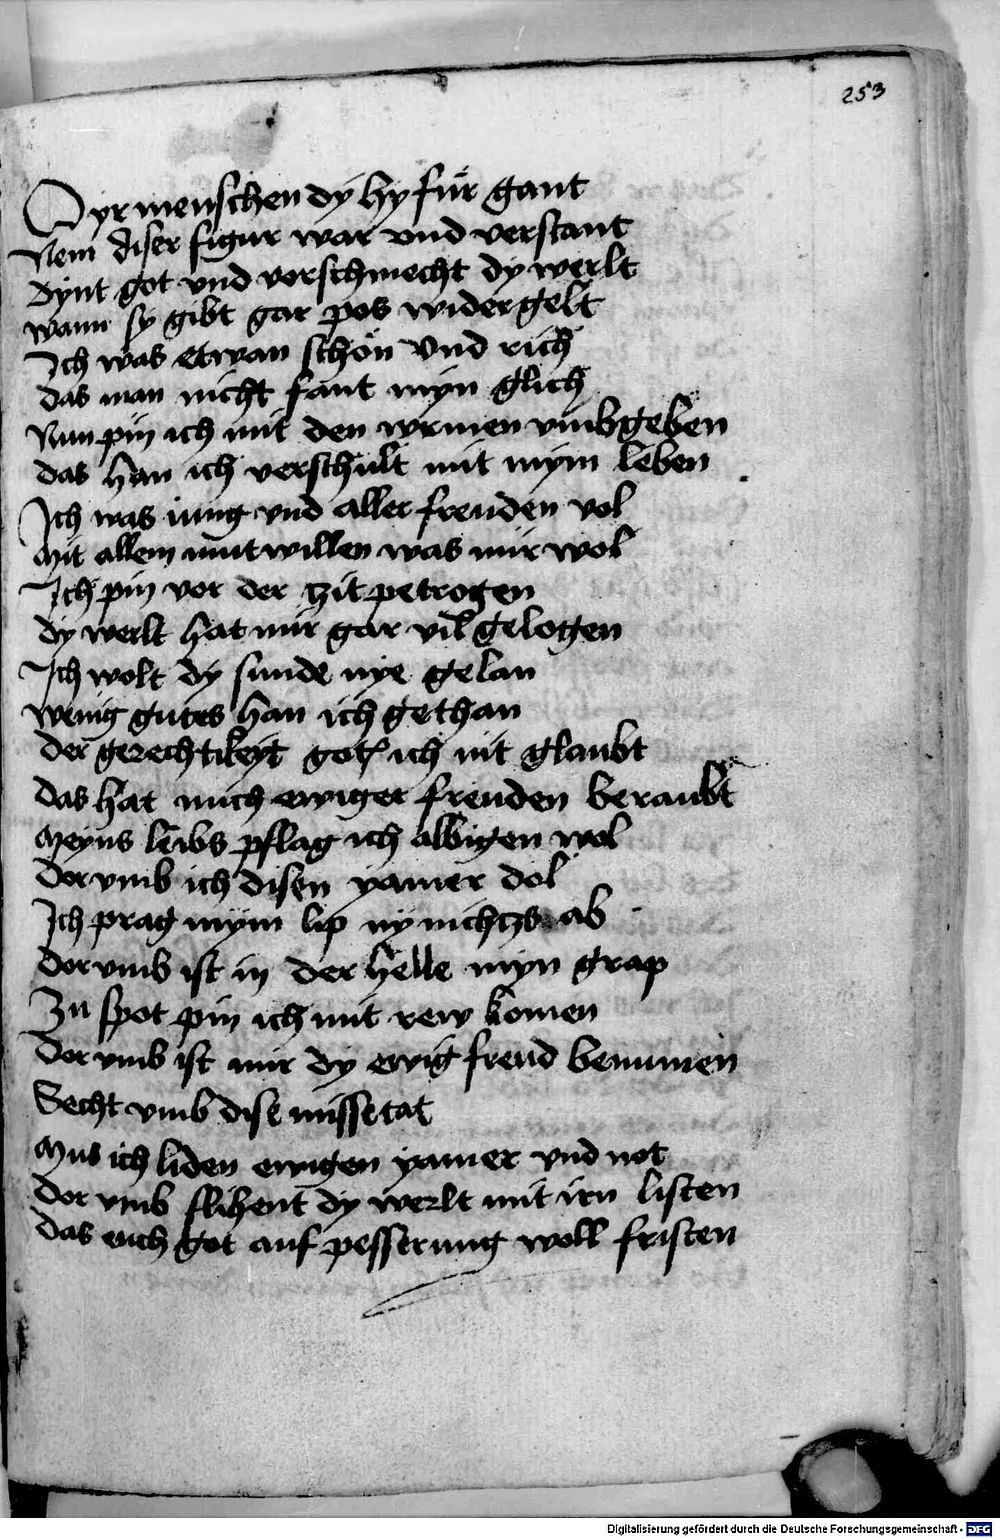 253
O yr menschen dy hy für gant
Nem diser figur war vnd verstant
dynt got vnd vorschmecht dy werlt
wann sy gibt gar pos widergelt
Ich was etwan schön vnd rich
das man nicht fant myn glich
Nun pin ich mit den wrmen vmbgeben
das han ich verschult mit mym leben
Ich was iung vnd aller freuden vol
Mit allem mutwillen was mir wol
Ich pin vor der zit petrogen
dy werlt hat mir gar vil gelogen
Ich wolt dy sunde nye gelan
wenig gutes han ich gethan
der gerechtikeyt gotz ich nit glaubt
das hat mich ewiger freuden beraubt
Meyns leibs pflag ich albigen wol
Dorvmb ich disen yamer dol
Ich prag mym lip ny nichtzs ab
dorvmb ist in der helle myn grap
Zu spot pin ich mit rew komen
Dor vmb ist mir dy ewig freud benumen
Secht vmb dise missetat
Mus ich liden ewigen yamer vnd not
Dor vmb flihent dy werlt mit irn listen
das euch got auf pesserung woll fristen
Digitalisierung gefördert durch die Deutsche Forschungsgemeinschaft - DFG